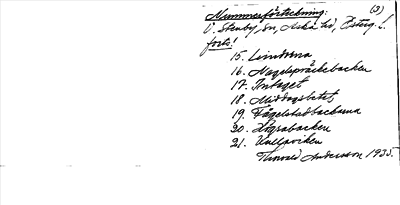 Nummerförteckning: (3)
V. Stenby, sn, Aska hd, Österg. l.
forts!
15. Lindorna
16. Nagelspräckebacken
17. Intaget
18. Middagsbetet
19. Fågelstadbackarna
20. Högabacken
21. Kullaviken
Thorvald Andersson 1935.